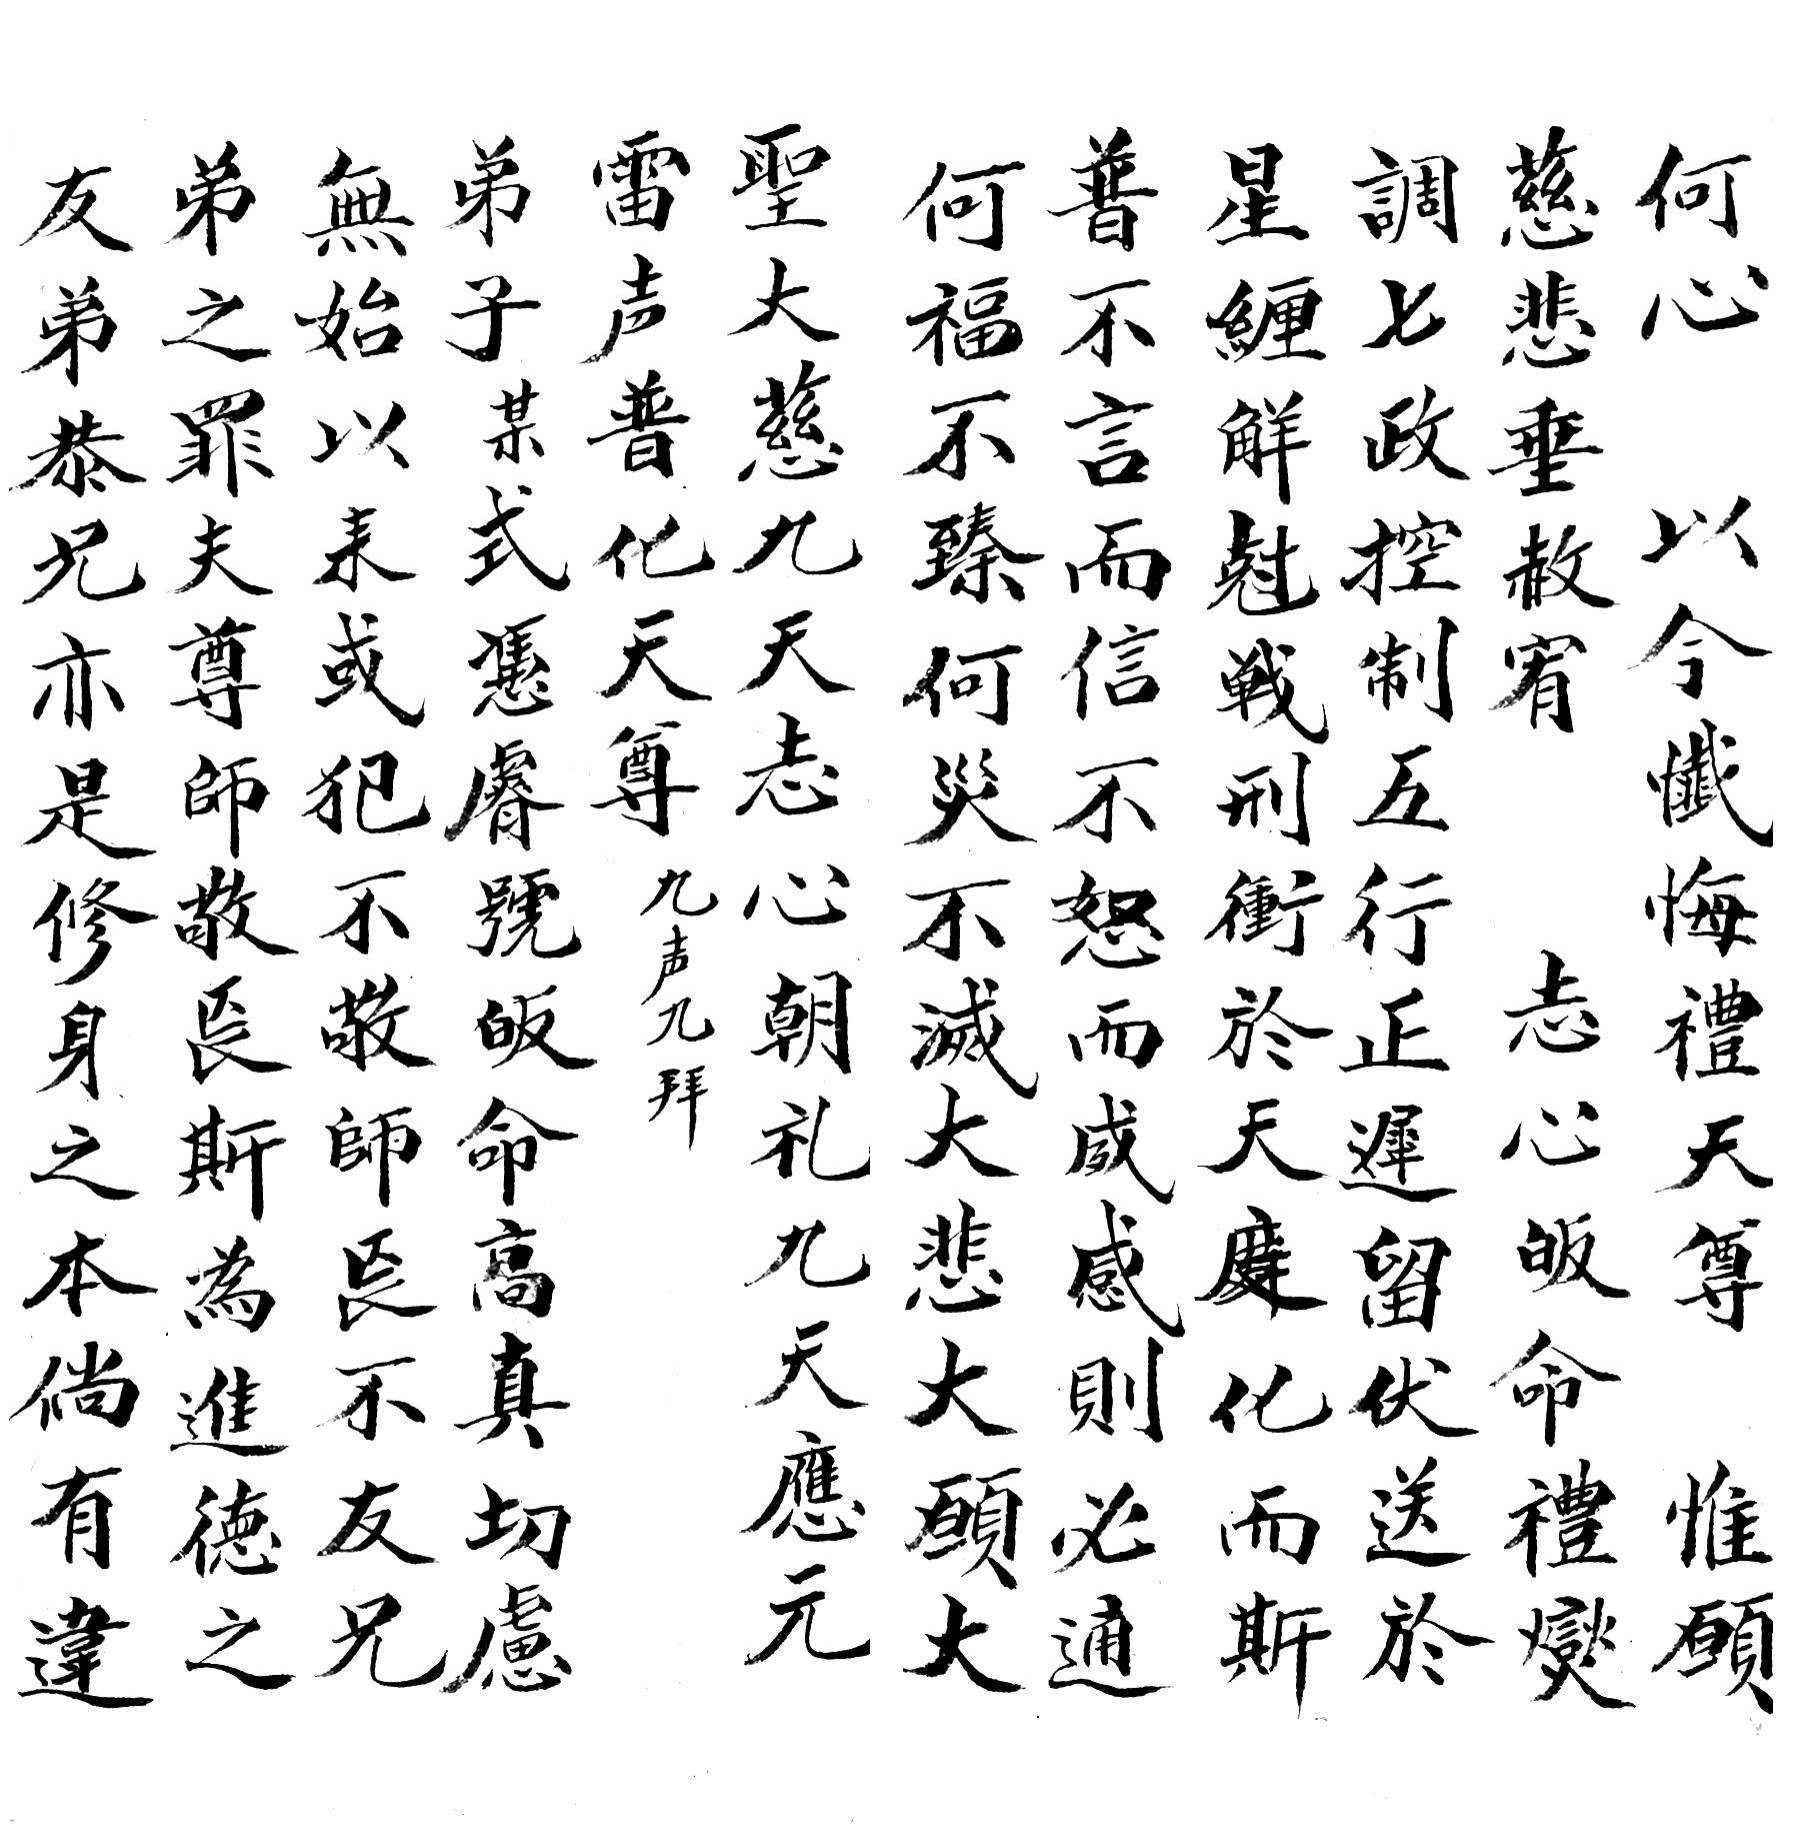 何心　以今懺悔禮天尊　惟願
慈悲垂赦宥　志心皈命禮燮
調七政控制五行正遲留伏送於
星纏解尅戦刑衝於天度化而斯
普不言而信不怒而威感則必通
何福不臻何災不滅大悲大願大
聖大慈九天志心朝礼九天應元
雷声普化天尊九声九拜
弟子某式憑睿號皈命高真切慮
無始以来或犯不敬師長不友兄
弟之罪夫尊師敬長斯為進德之
友弟恭兄亦是修身之本倘有違